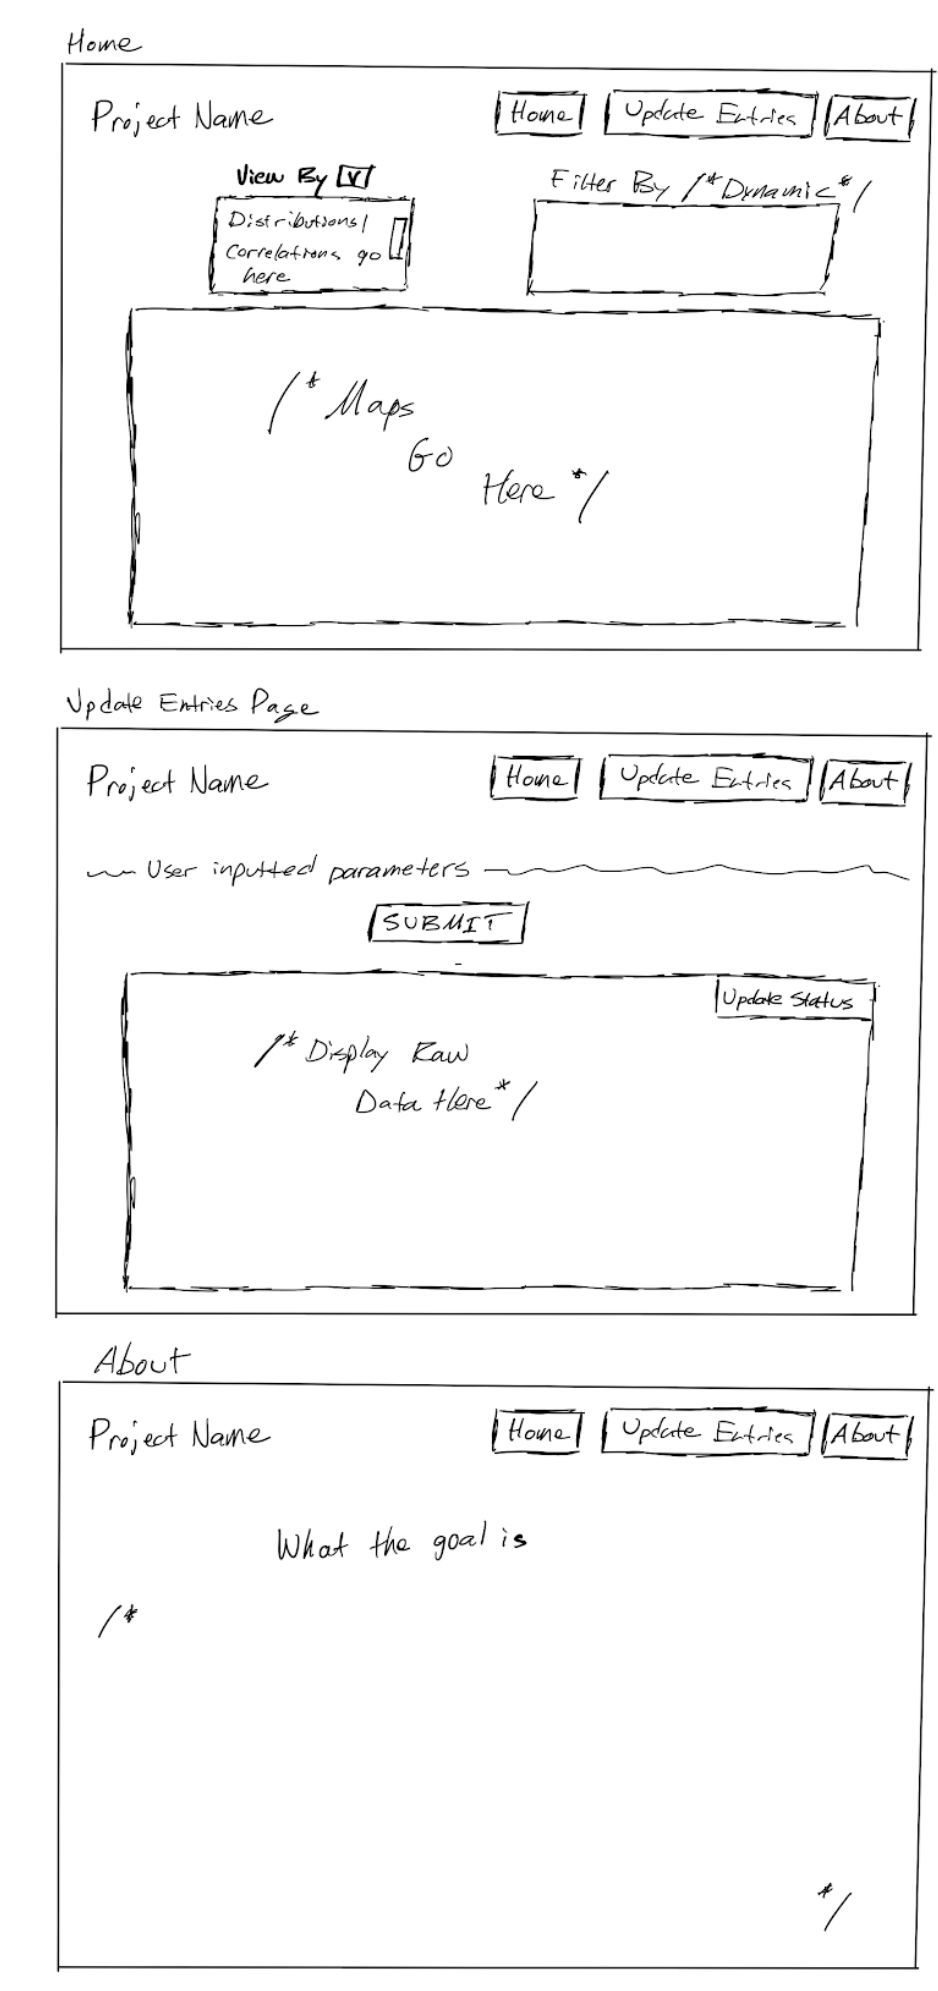 Home
Project Name
Home
Update Entries
About
View By
Filter By /*Dynamic*/
Distributions/
Correlations go
here
/* Maps
Go
Here */
Update Entries Page
Project Name
Home
Update Entries
About
User inputted parameters
SUBMIT
Update Status
/* Display Raw
Data Here */
About
Project Name
Home
Update Entries
About
What the goal is
/*
*/